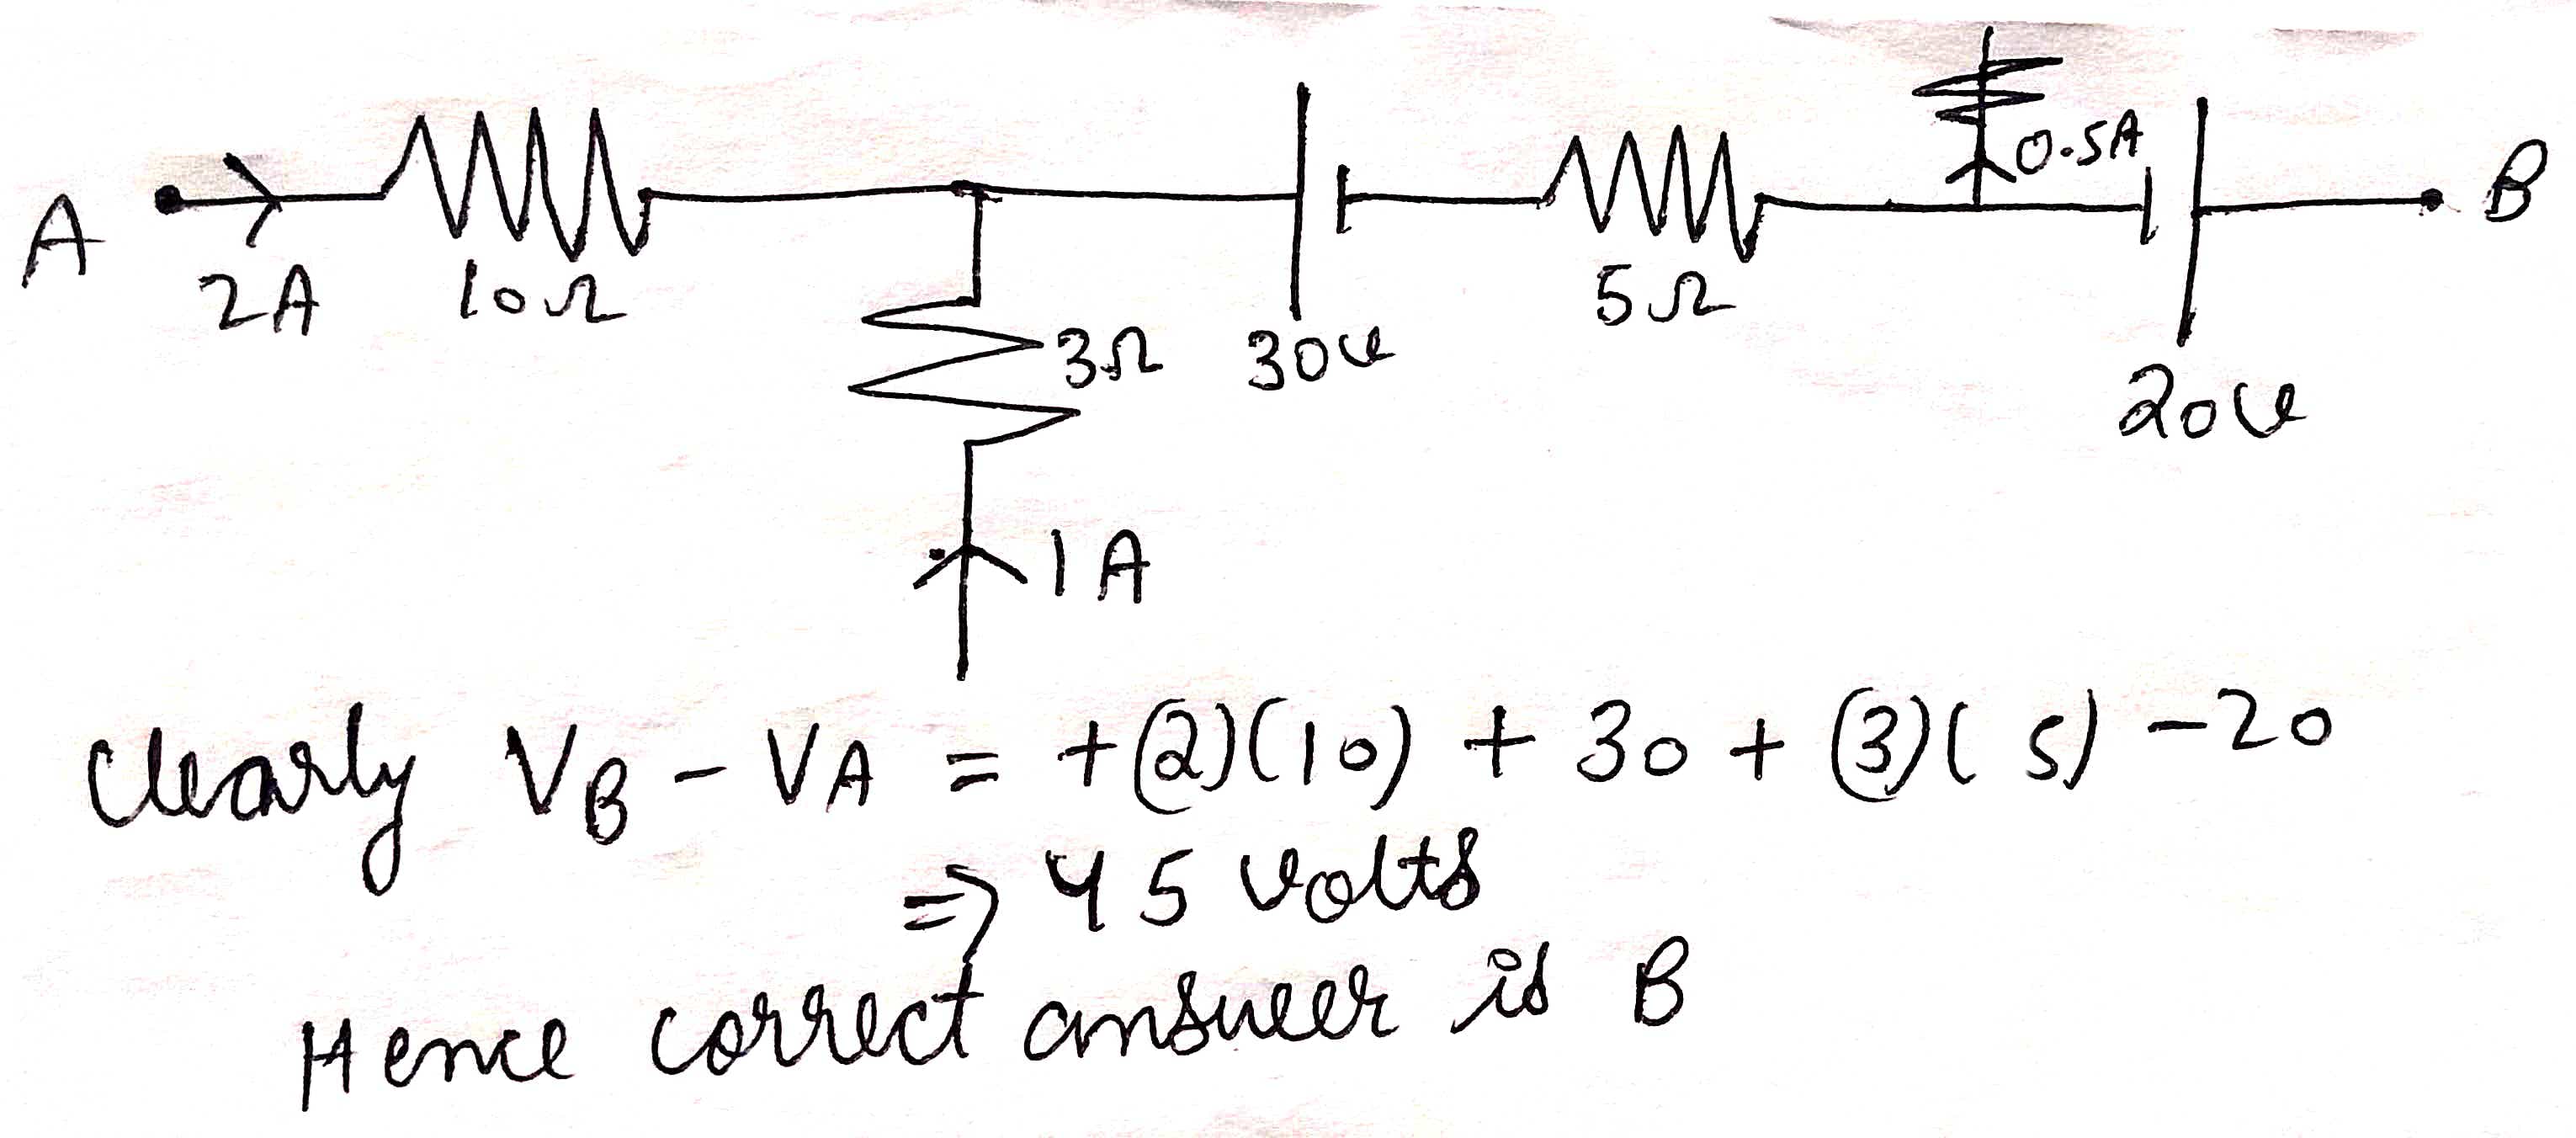 0.5A
A 2A 10Ω 5Ω B
3Ω 30v
20v
1A
Clearly VB - VA = +(2)(10) + 30 + (3)(5) - 20
=> 45 volts
Hence correct answer is B